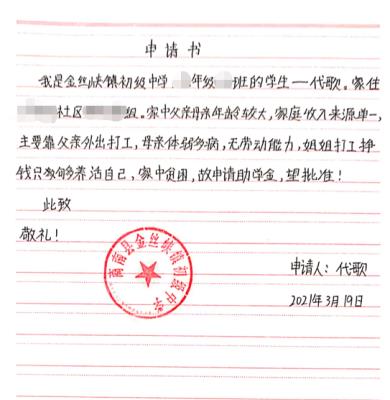 申请书
我是金丝峡镇初级中学 年级 班的学生一代歌。家住
社区 组。家中父亲母亲年龄较大,家庭收入来源单一,
主要靠父亲外出打工,母亲体弱多病,无劳动能力,姐姐打工挣
钱只够养活自己,家中贫困,故申请助学金,望批准!
此致
敬礼!
商南县金丝峡镇初级中学
申请人:代歌
2021年3月19日